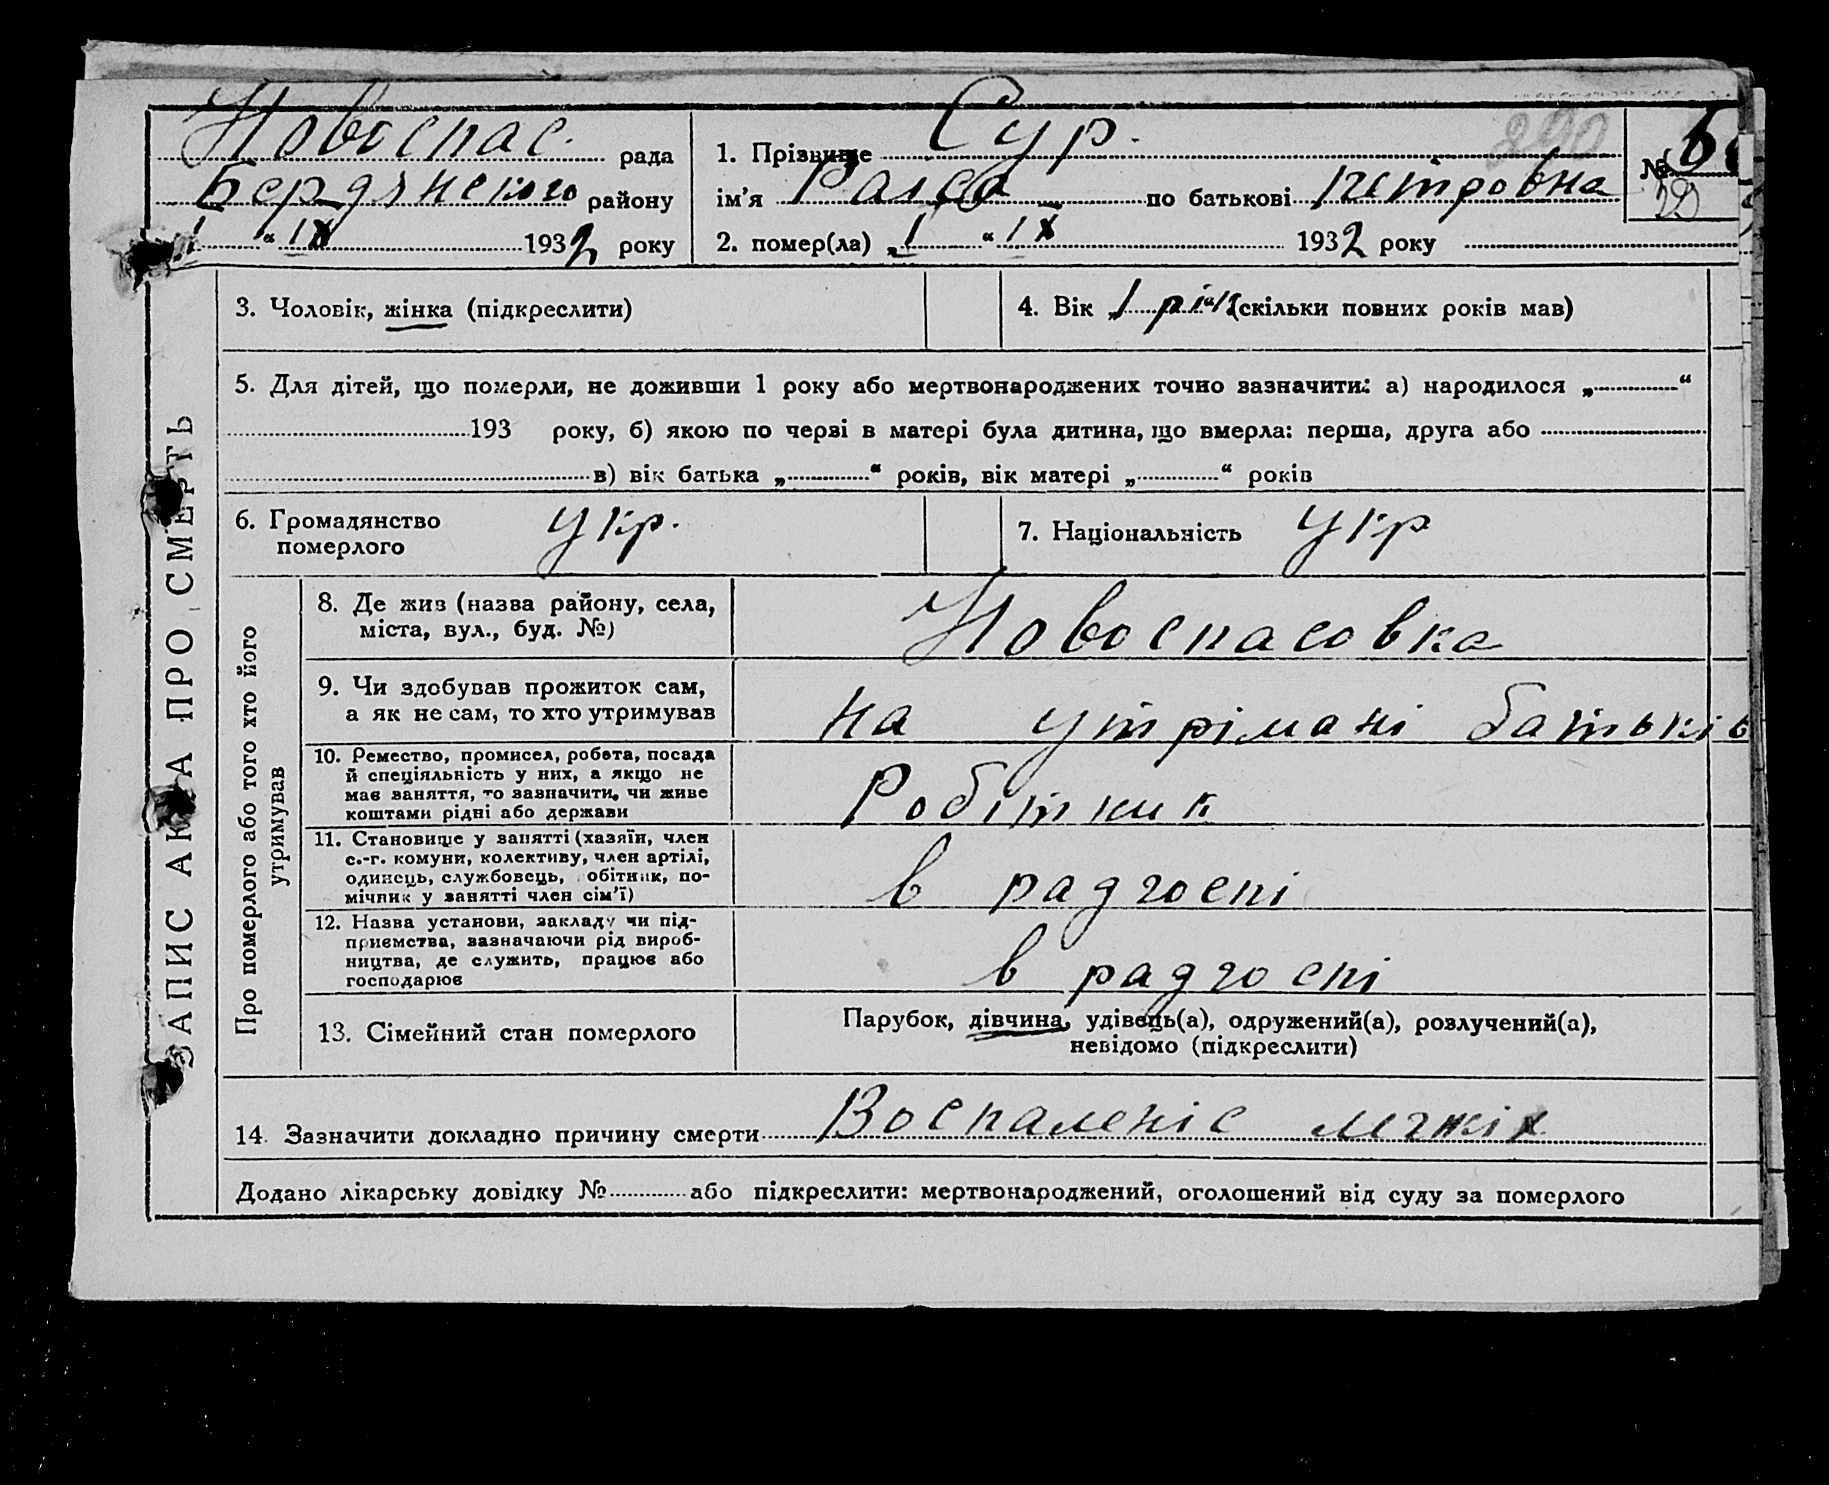 Новоспас. рада
Бердянского району
1 “ IX 1932 року
1. Прізвище Сур.
290
ім’я Раиса по батькові Петровна
2. помер(ла) „1 “ IX 1932 року
№
ЗАПИС АКТА ПРО СМЕРТЬ
3. Чоловік, жінка (підкреслити)
4. Вік „1 рік“ (скільки повних років мав)
5. Для дітей, що померли, не доживши 1 року або мертвонароджених точно зазначити: а) народилося „ “
193 року, б) якою по черзі в матері була дитина, що вмерла: перша, друга або
в) вік батька „ “ років, вік матері „ “ років
6. Громадянство
померлого
укр.
7. Національність укр
Про померлого або того хто його
утримував
8. Де жив (назва району, села,
міста, вул., буд. №)
Новоспасовка
9. Чи здобував прожиток сам,
а як не сам, то хто утримував
на утрімані батьків
10. Ремество, промисел, робота, посада
й спеціяльність у них, а якщо не
має заняття, то зазначити, чи живе
коштами рідні або держави
Робітник
11. Становище у занятті (хазяїн, член
с.-г. комуни, колективу, член артілі,
одинець, службовець, обітник, по-
мічник у занятті член сім’ї)
в радгоспі
12. Назва установи, закладу чи під-
приємства, зазначаючи рід вироб-
ництва, де служить, працює або
господарює
в радгоспі
13. Сімейний стан померлого
Парубок, дівчина, удівець(а), одружений(а), розлучений(а),
невідомо (підкреслити)
14. Зазначити докладно причину смерти Воспаленіє легкіх
Додано лікарську довідку № або підкреслити: мертвонароджений, оголошений від суду за померлого